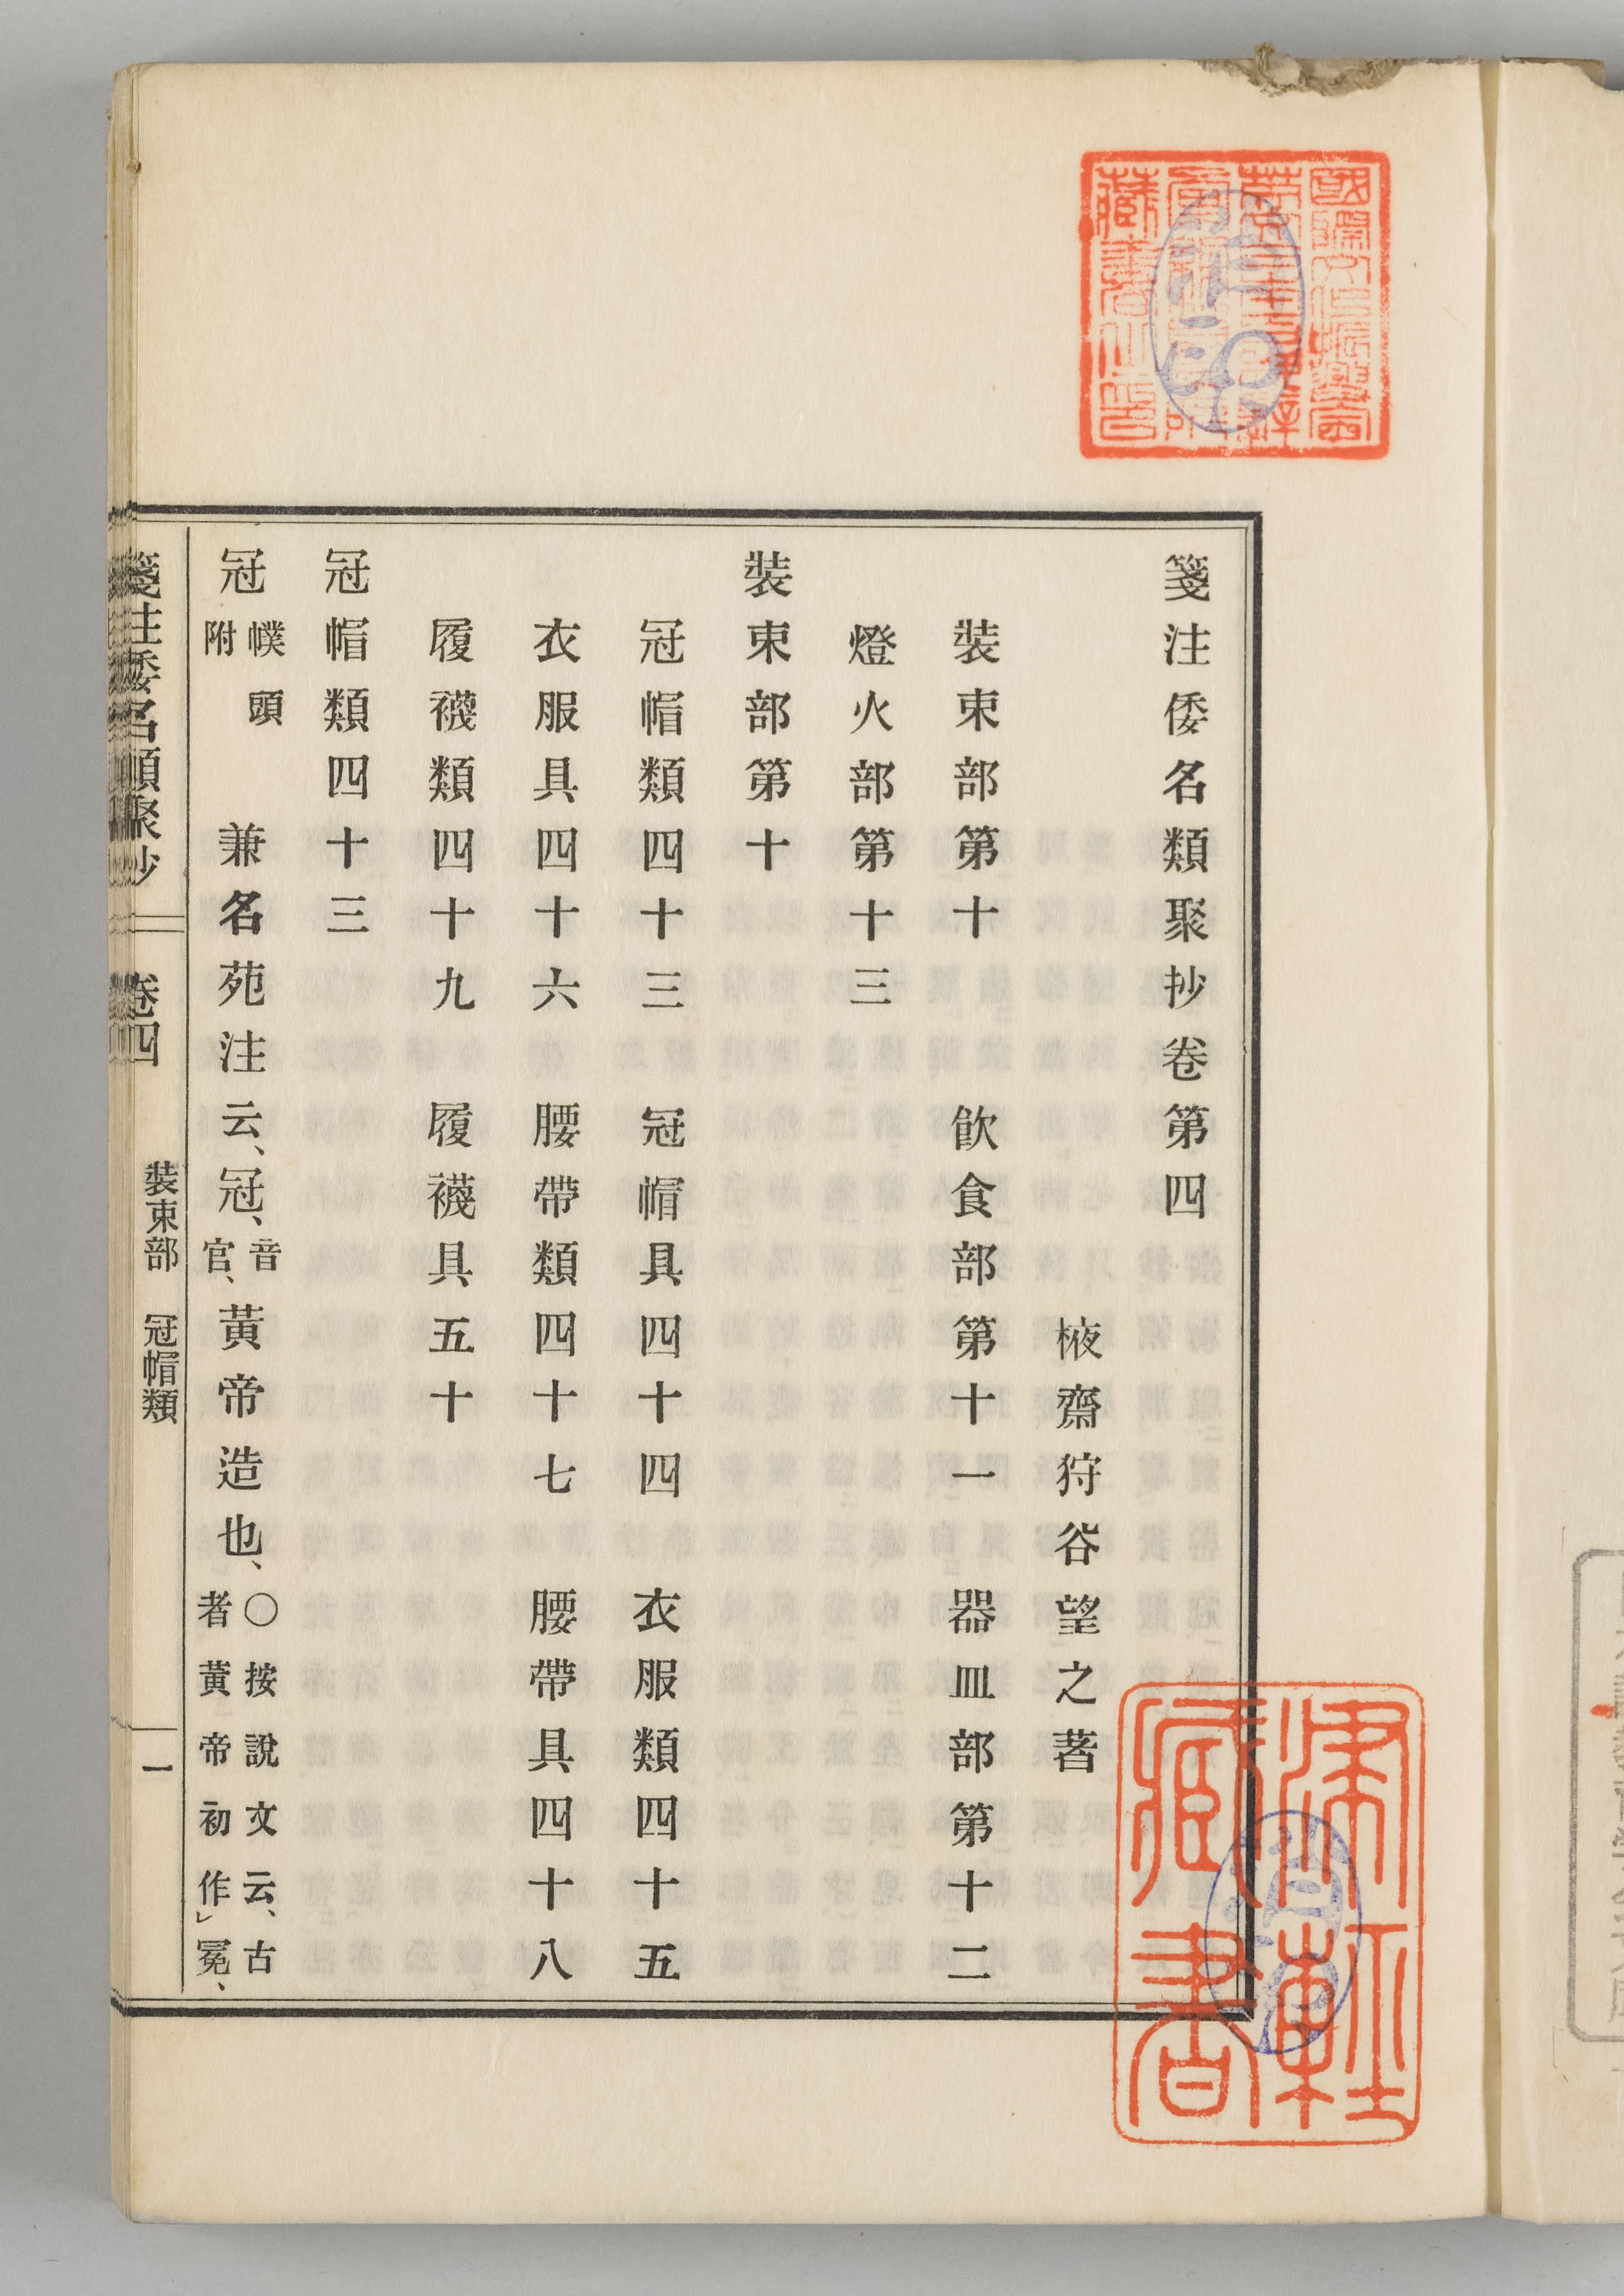 箋注倭名類聚抄卷第四
棭齋狩谷望之著
裝束部第十　飮食部第十一　器皿部第十二
燈火部第十三
裝束部第十
冠帽類四十三　冠帽具四十四　衣服類四十五
衣服具四十六　腰帶類四十七　腰帶具四十八
履襪類四十九　履襪具五十
冠帽類四十三
冠 幞頭附　兼名苑注云、冠、音官、黃帝造也、○按說文云、古者黃帝初作」冕、
箋注倭名類聚抄　卷四　裝束部　冠帽類　一
藏書